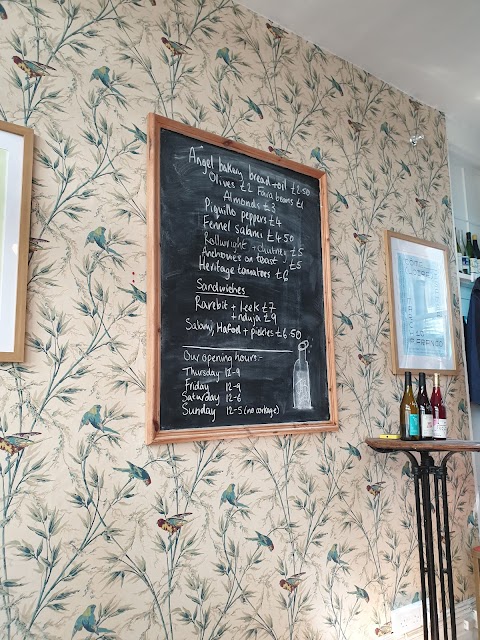 Angel bakery bread + oil £2.50
Olives £2 Fava beans £1
Almonds £3
Piquillo peppers £4
Fennel salami £4.50
Rollwright + chutney £5
Anchovies on toast £5
Heritage tomatoes £6
Sandwiches
Rarebit + leek £7
+ nduja £9
Salami, Hafod + pickles £6.50
Our opening hours:-
Thursday 12-9
Friday 12-9
Saturday 12-6
Sunday 12-5 (no corkage)